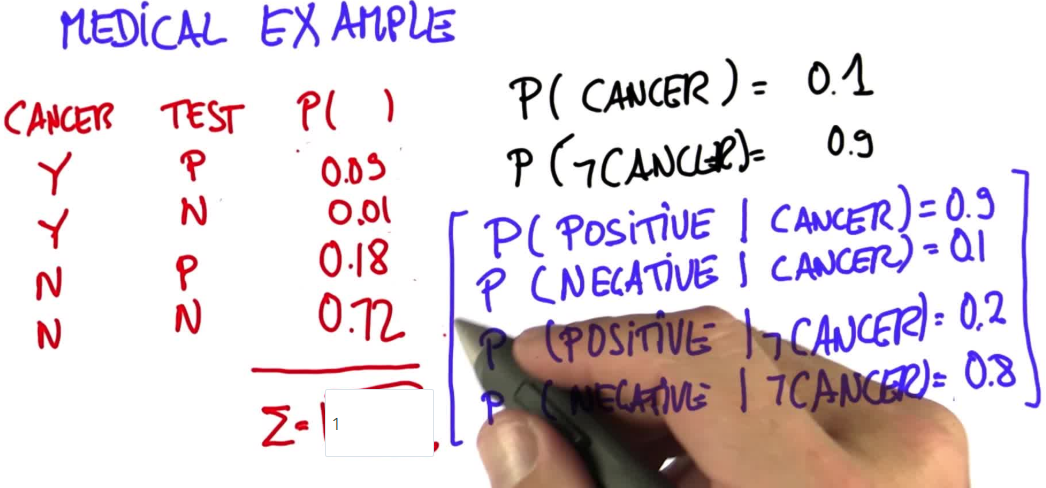 MEDICAL EXAMPLE
CANCER TEST P( )
Y P 0.09
Y N 0.01
N P 0.18
N N 0.72
Σ= 1
P( CANCER ) = 0.1
P (¬CANCER)= 0.9
P( POSITIVE | CANCER) = 0.9
P (NEGATIVE | CANCER) = 0.1
P (POSITIVE | ¬CANCER) = 0.2
P (NEGATIVE | ¬CANCER) = 0.8